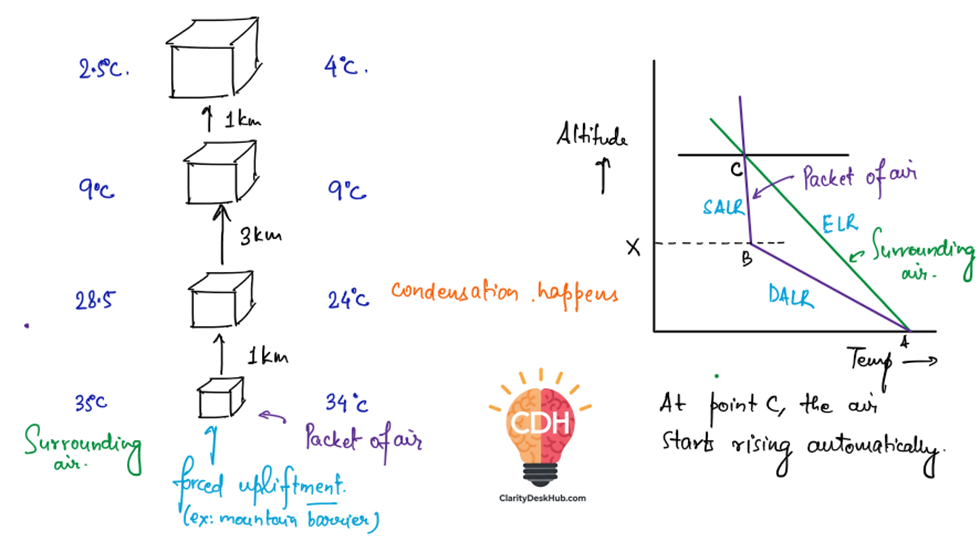 2.5°C.
4°C.
1km
9°C
9°C
3km
28.5
24°C
Condensation happens
1km
35°C
34°C
Surrounding
air.
Packet of air
forced upliftment.
(ex: mountain barrier)
CDH
ClarityDeskHub.com
Altitude
C
Packet of air
SALR
ELR
X
B
Surrounding
air.
DALR
A
Temp
At point C, the air
starts rising automatically.